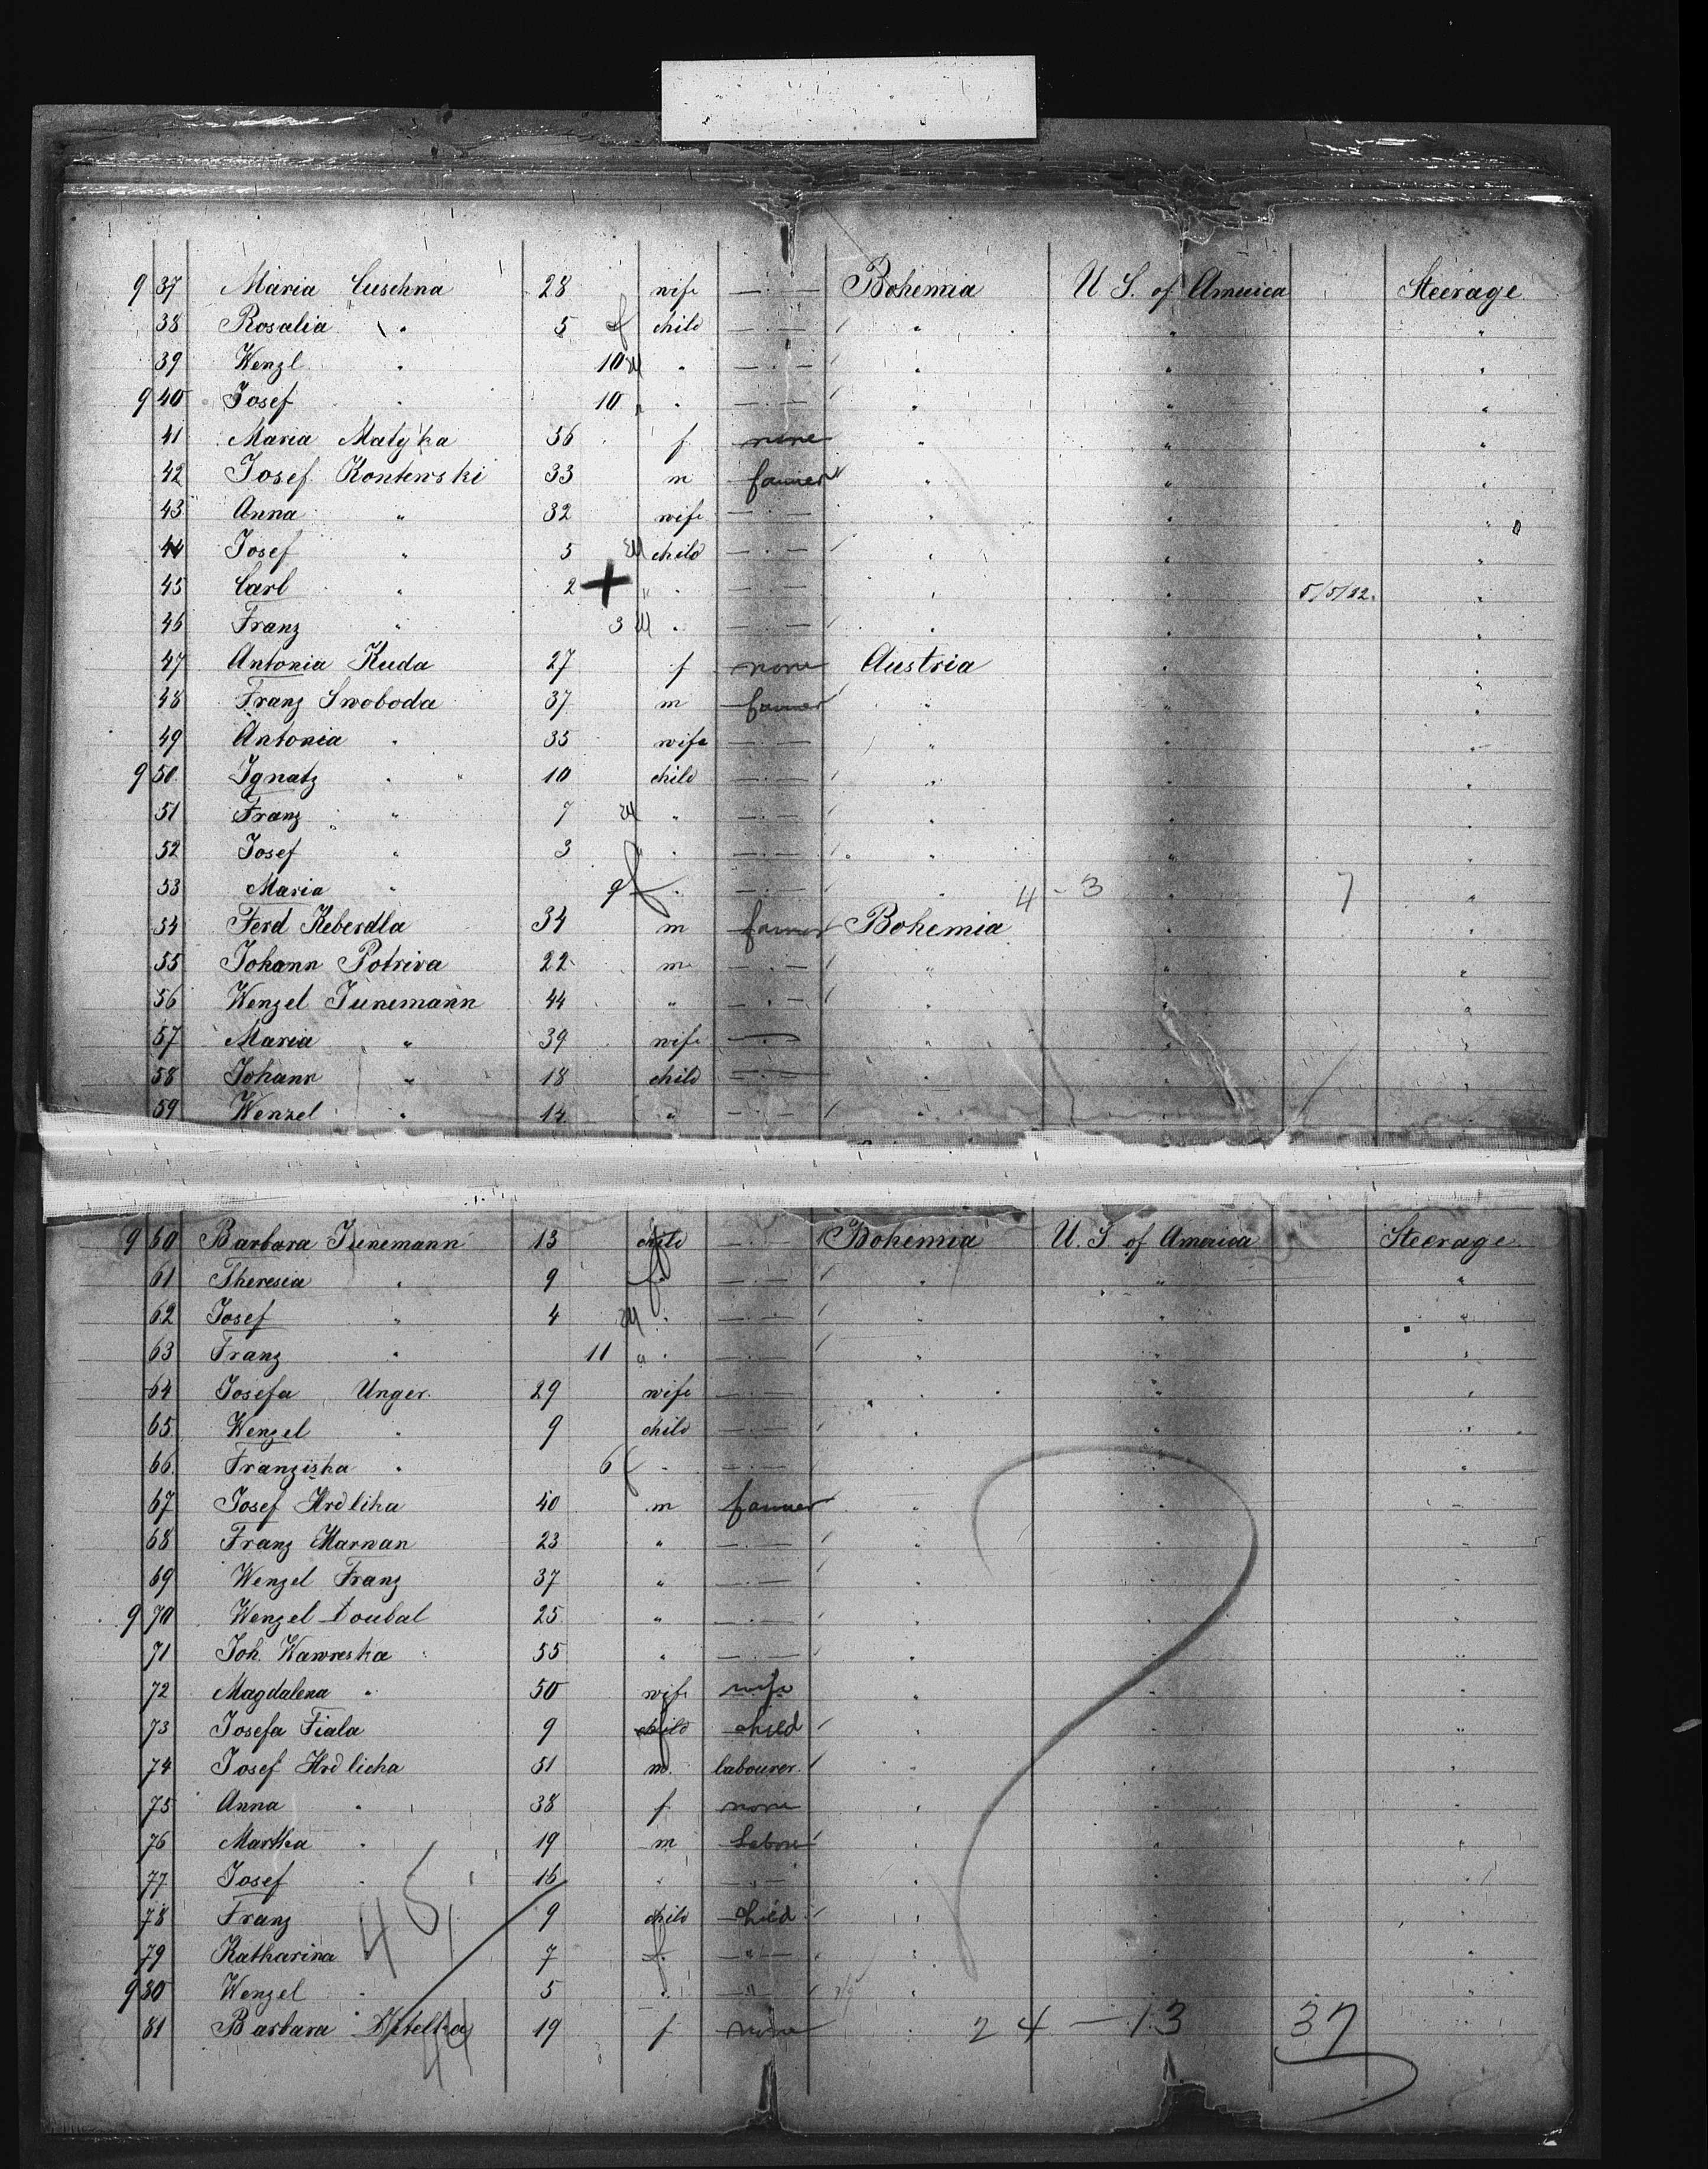 9 37 Maria Cuschna 28 wife — · — Bohemia U S. of America Steerage
38 Rosalia " 5 f child — · — " " "
39 Wenzl " 10 M " — · — " " "
9 40 Josef " 10 " " — · — " " "
41 Maria Matyka 56 f none " " "
42 Josef Kontenski 33 m farmer " " "
43 Anna " 32 wife — · — " " "
44 Josef " 5 M child — · — " " "
45 Carl " 2 + " — · — " " 5/5/82. "
46 Franz " 3 M " — · — " " "
47 Antonia Kuda 27 f none Austria " "
48 Franz Swoboda 37 m farmer " " "
49 Antonia " 35 wife — · — " " "
9 50 Ignatz " 10 child — · — " " "
51 Franz " 7 M " — · — " " "
52 Josef " 3 " " — · — " " "
53 Maria " 9 f " — · — " 4 - 3 " 7 "
54 Ferd Keberdla 34 m farmer Bohemia " "
55 Johann Potriva 22 m — · — " " "
56 Wenzel Junemann 44 " — · — " " "
57 Maria " 39 wife — · — " " "
58 Johann " 18 child — · — " " "
59 Wenzel " 14 " — · — " " "
9 60 Barbara Junemann 13 child — · — Bohemia U. S of America Steerage
61 Theresia " 9 f — · — " " "
62 Josef " 4 M " — · — " " "
63 Franz " 11 " " — · — " " "
64 Josefa Unger 29 wife — · — " " "
65 Wenzel " 9 child — · — " " "
66 Franziska " 6 f " — · — " " "
67 Josef Hrdliha 40 m farmer " " "
68 Franz Marwan 23 " — · — " " "
69 Wenzel Franz 37 " — · — " " "
9 70 Wenzel Doubal 25 " — · — " " "
71 Joh. Wawreska 55 " — · — " " "
72 Magdalena " 50 wife wife " " "
73 Josefa Fiala 9 child child " " "
74 Josef Hrdlicha 51 m labourer " " "
75 Anna " 38 f none " " "
76 Martha " 19 m Labore " " "
77 Josef " 16 " — · — " " "
78 Franz " 9 child child " " "
79 Katharina 45 7 f — " — " " "
9 80 Wenzel " 5 " " " " "
81 Barbara 44 19 f none " 24 — 13 37